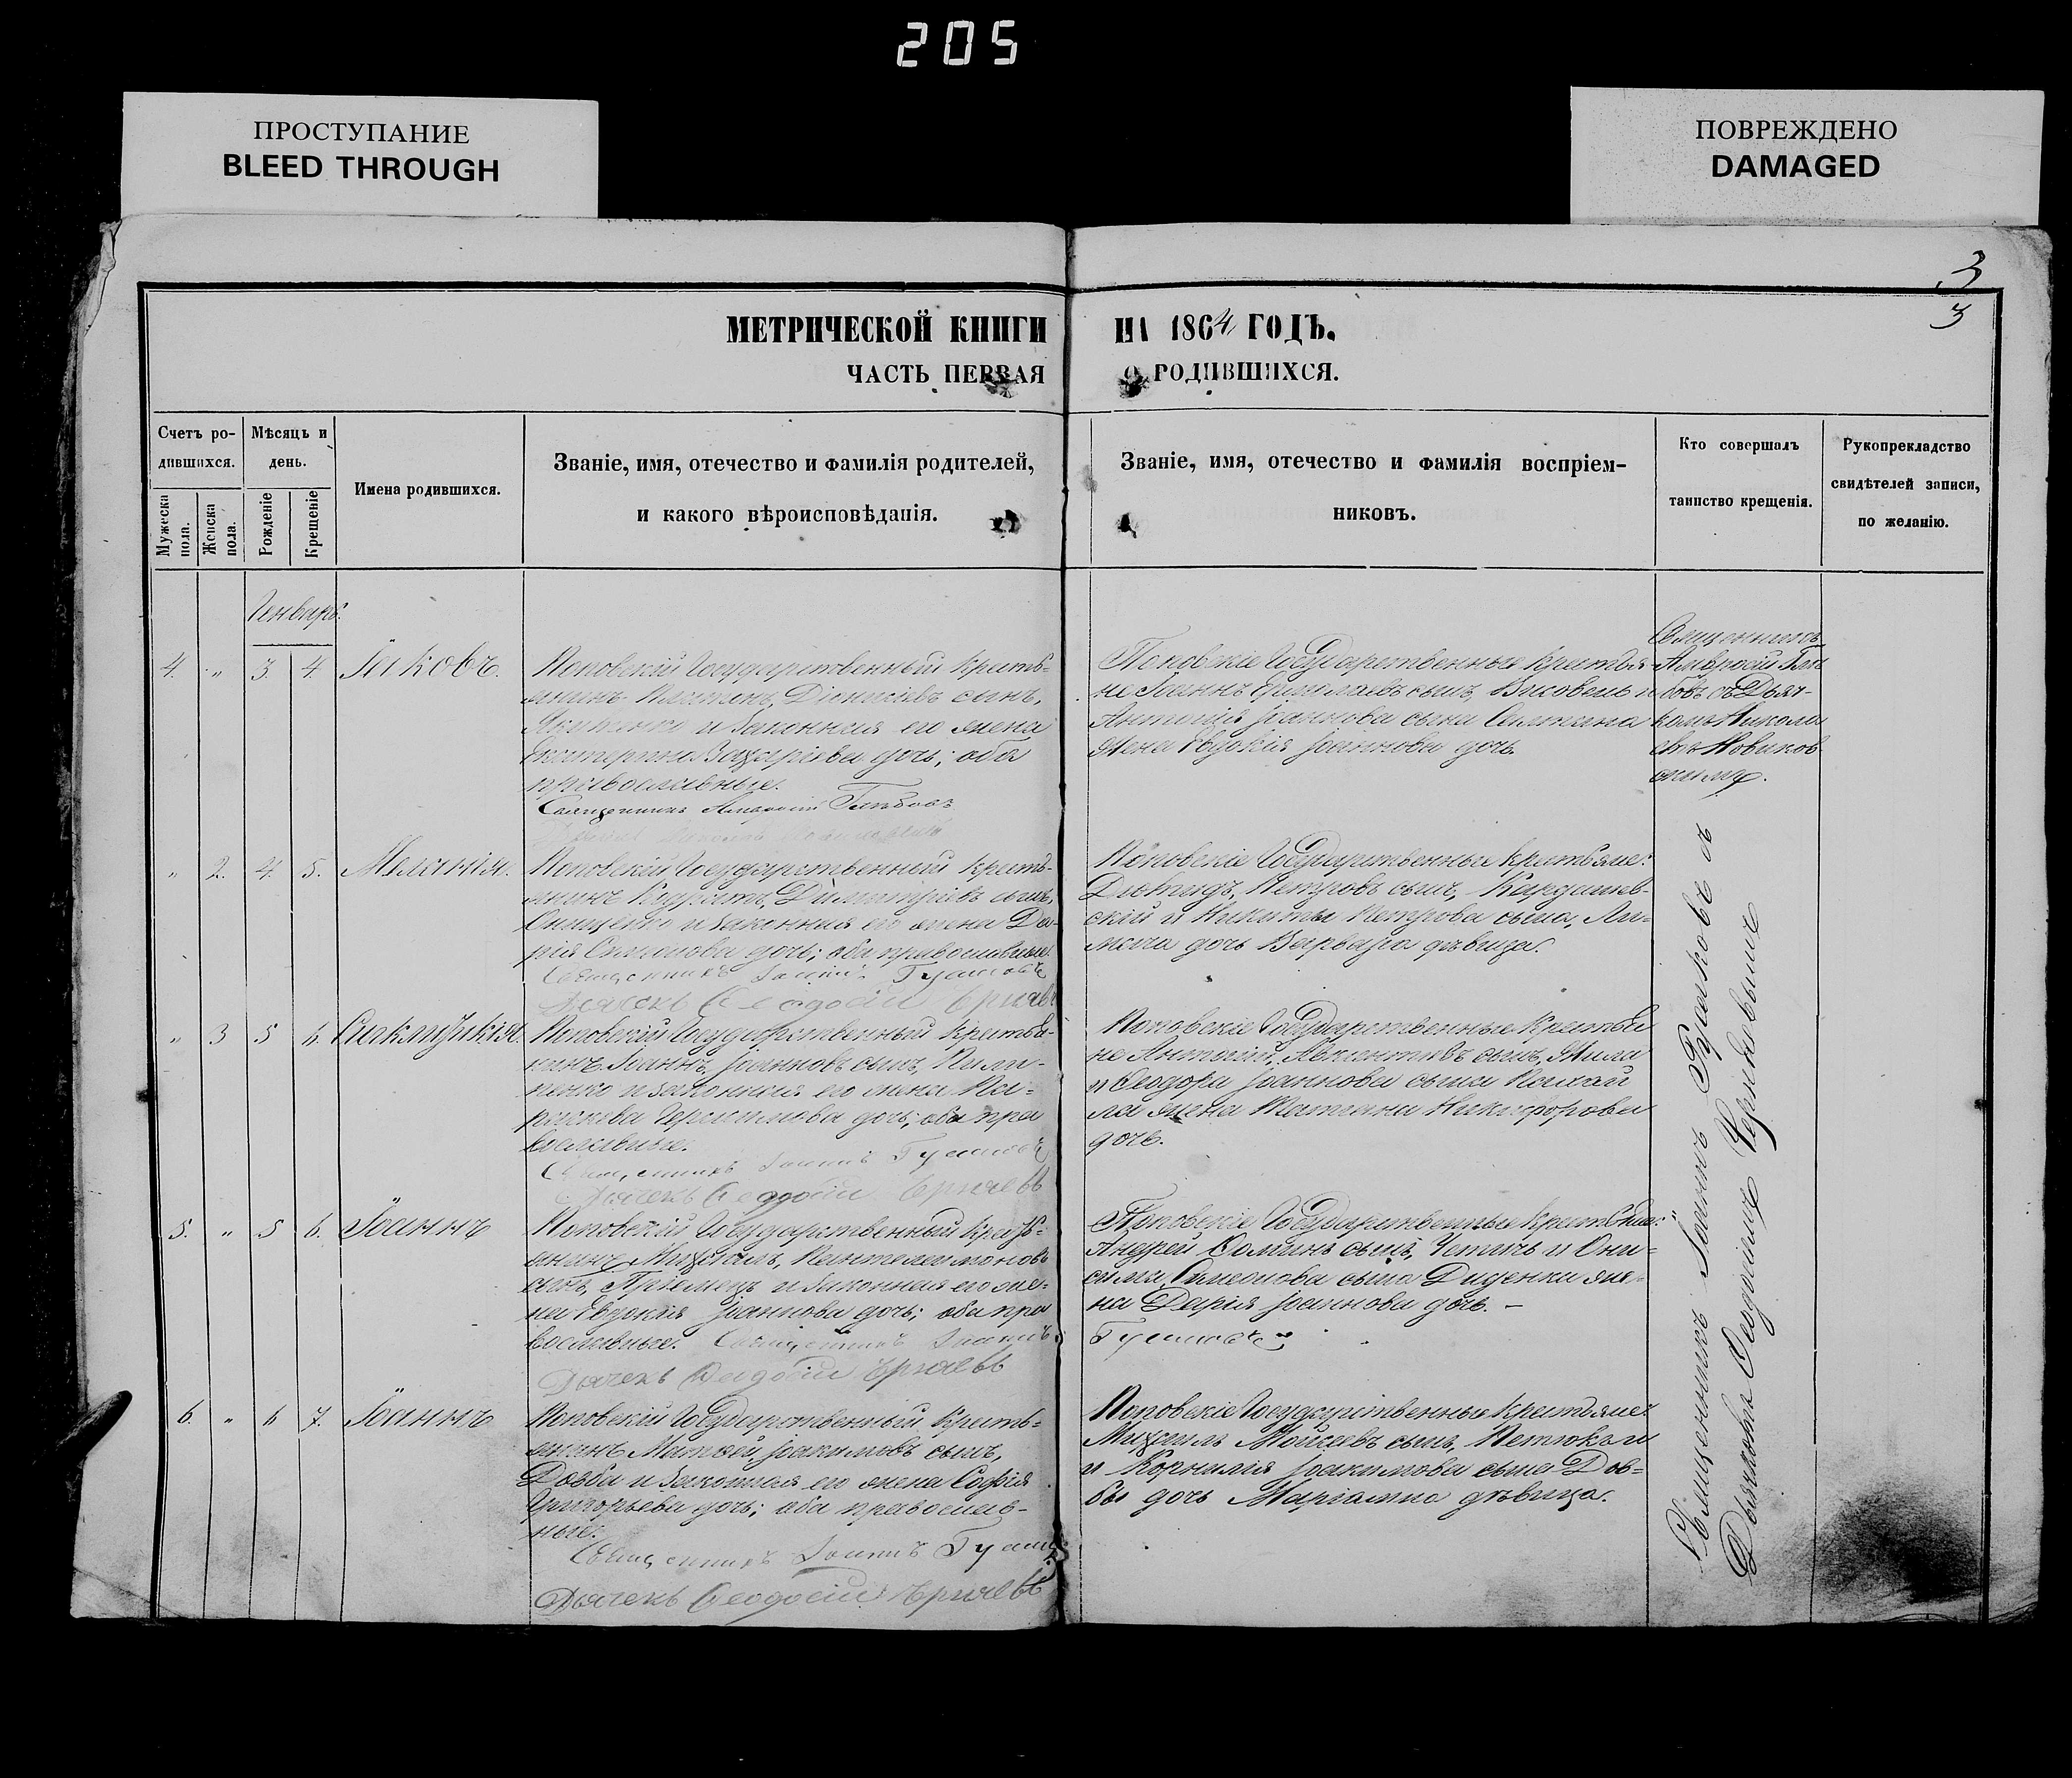 205
ПРОСТУПАНИЕ
BLEED THROUGH
ПОВРЕЖДЕНО
DAMAGED
3
3
МЕТРИЧЕСКОЙ КНИГИ НА 1864 ГОДЪ.
ЧАСТЬ ПЕРВАЯ О РОДИВШИХСЯ.
Счетъ ро-
дившихся.
Мужеска пола.
Женска пола.
Мѣсяць и
день.
Рожденіе
Крещеніе
Имена родившихся.
Званіе, имя, отечество и фамилія родителей,
и какого вѣроисповѣданія.
Званіе, имя, отечество и фамилія воспріем-
никовъ.
Кто совершалъ
таинство крещенія.
Рукоприкладство
свидѣтелей записи,
по желанію.
Генварь.
4. " 3. 4. Іаковъ.
Поповскій Государственный крестья-
нинъ Діонисіевъ сынъ,
и законная его жена
Екатерина Захаріева дочь; оба
православные.
Священникъ Амвросій Глѣбовъ
Поповскіе Государственные крестья-
не Іоаннъ сынъ,
Антонія Іоаннова сына
жена Евдокія Іоаннова дочь.
Священникъ
Амвросій Глѣ-
бовъ съ Дьяч-
комъ Никола-
емъ Новиков-
скимъ.
" 2. 4. 5. Меланія.
Поповскій Государственный кресть-
янинъ Кодратъ, Димитріевъ сынъ,
Онищенко и законная его жена Да-
рія Симеонова дочь; оба православные.
Священникъ Іоаннъ
Дьячекъ Ѳеодосій
Поповскіе Государственные крестьяне:
Діомидъ, Петровъ сынъ, Кардашев-
скій и Никиты Петрова сына, Ли-
мача дочь Варвара дѣвица.
" 3 5 6. Синклитикія.
Поповскій Государственный крестья-
нинъ Іоаннъ, Іоанновъ сынъ, Пили-
пенко и законная его жена Па-
раскева Герасимова дочь; оба пра-
вославные.
Священникъ Іоаннъ
Дьячекъ Ѳеодосій
Поповскіе Государственные крестья-
не Антоній, сынъ,
и Ѳеодора Іоаннова сына
жена Татіана Никифорова
дочь.
5. " 5 6. Іоаннъ
Поповскій Государственный кресть-
янинъ Михаилъ, Пантелеимоновъ
сынъ, и законная его же-
на Евдокія Іоаннова дочь; оба пра-
вославные. Священникъ Іоаннъ
Дьячекъ Ѳеодосій
Поповскіе Государственные крестьяне:
Андрей Ѳоминъ сынъ, и Они-
сима, Симеонова сына Диденки же-
на Дарія Іоаннова дочь. –
6. " 6 7. Іоаннъ
Поповскій Государственный кресть-
янинъ Матѳей, Іоакимовъ сынъ,
Довба и законная его жена Софія
Григорьева дочь; оба православ-
ные.
Священникъ Іоаннъ
Дьячекъ Ѳеодосій
Поповскіе Государственные крестьяне:
Михаилъ Моисеевъ сынъ,
и Корнилія Іоакимова сына Дов-
бы дочь Маріамна дѣвица.
Священникъ Іоаннъ съ
Дьячкомъ Ѳеодосіемъ